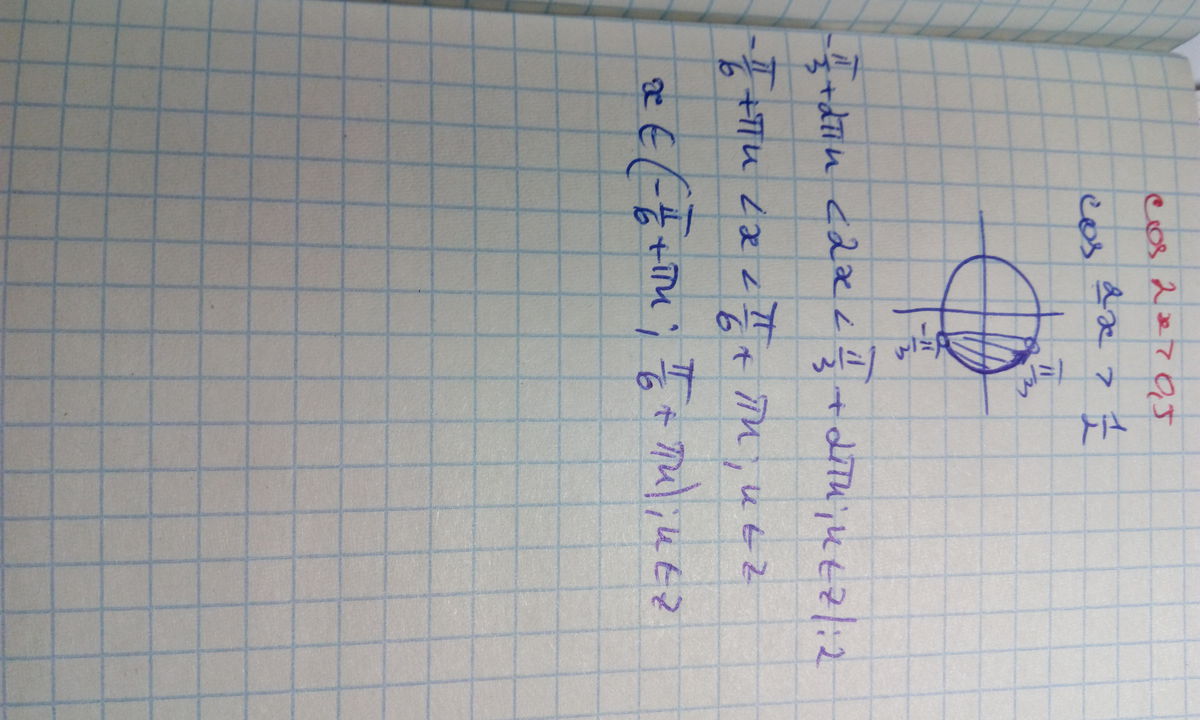 cos 2x > 0,5
cos 2x > 1/2
π/3
-π/3
-π/3 + 2πn < 2x < π/3 + 2πn; n ∈ z | :2
-π/6 + πn < x < π/6 + πn; n ∈ z
x ∈ (-π/6 + πn; π/6 + πn); n ∈ z